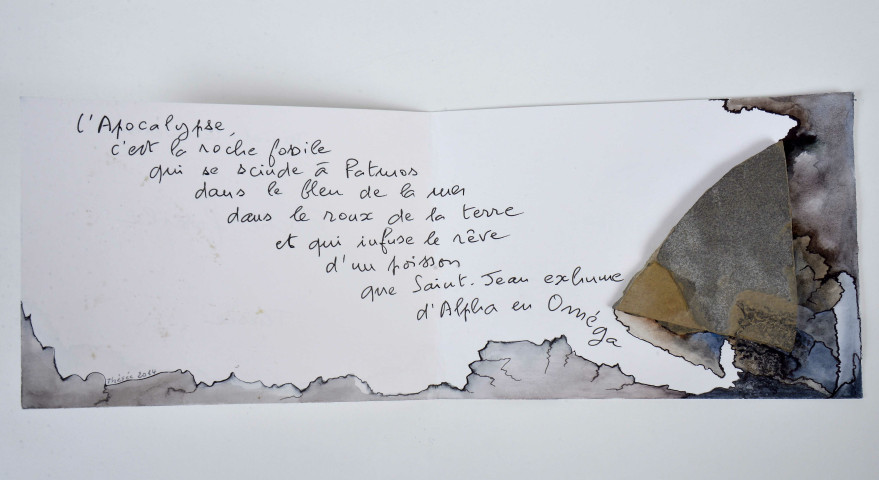 l'Apocalypse,
c'est la roche fossile
qui se scinde à Patmos
dans le bleu de la mer
dans le roux de la terre
et qui infuse le rêve
d'un poisson
que Saint-Jean exhume
d'Alpha en Oméga
2014